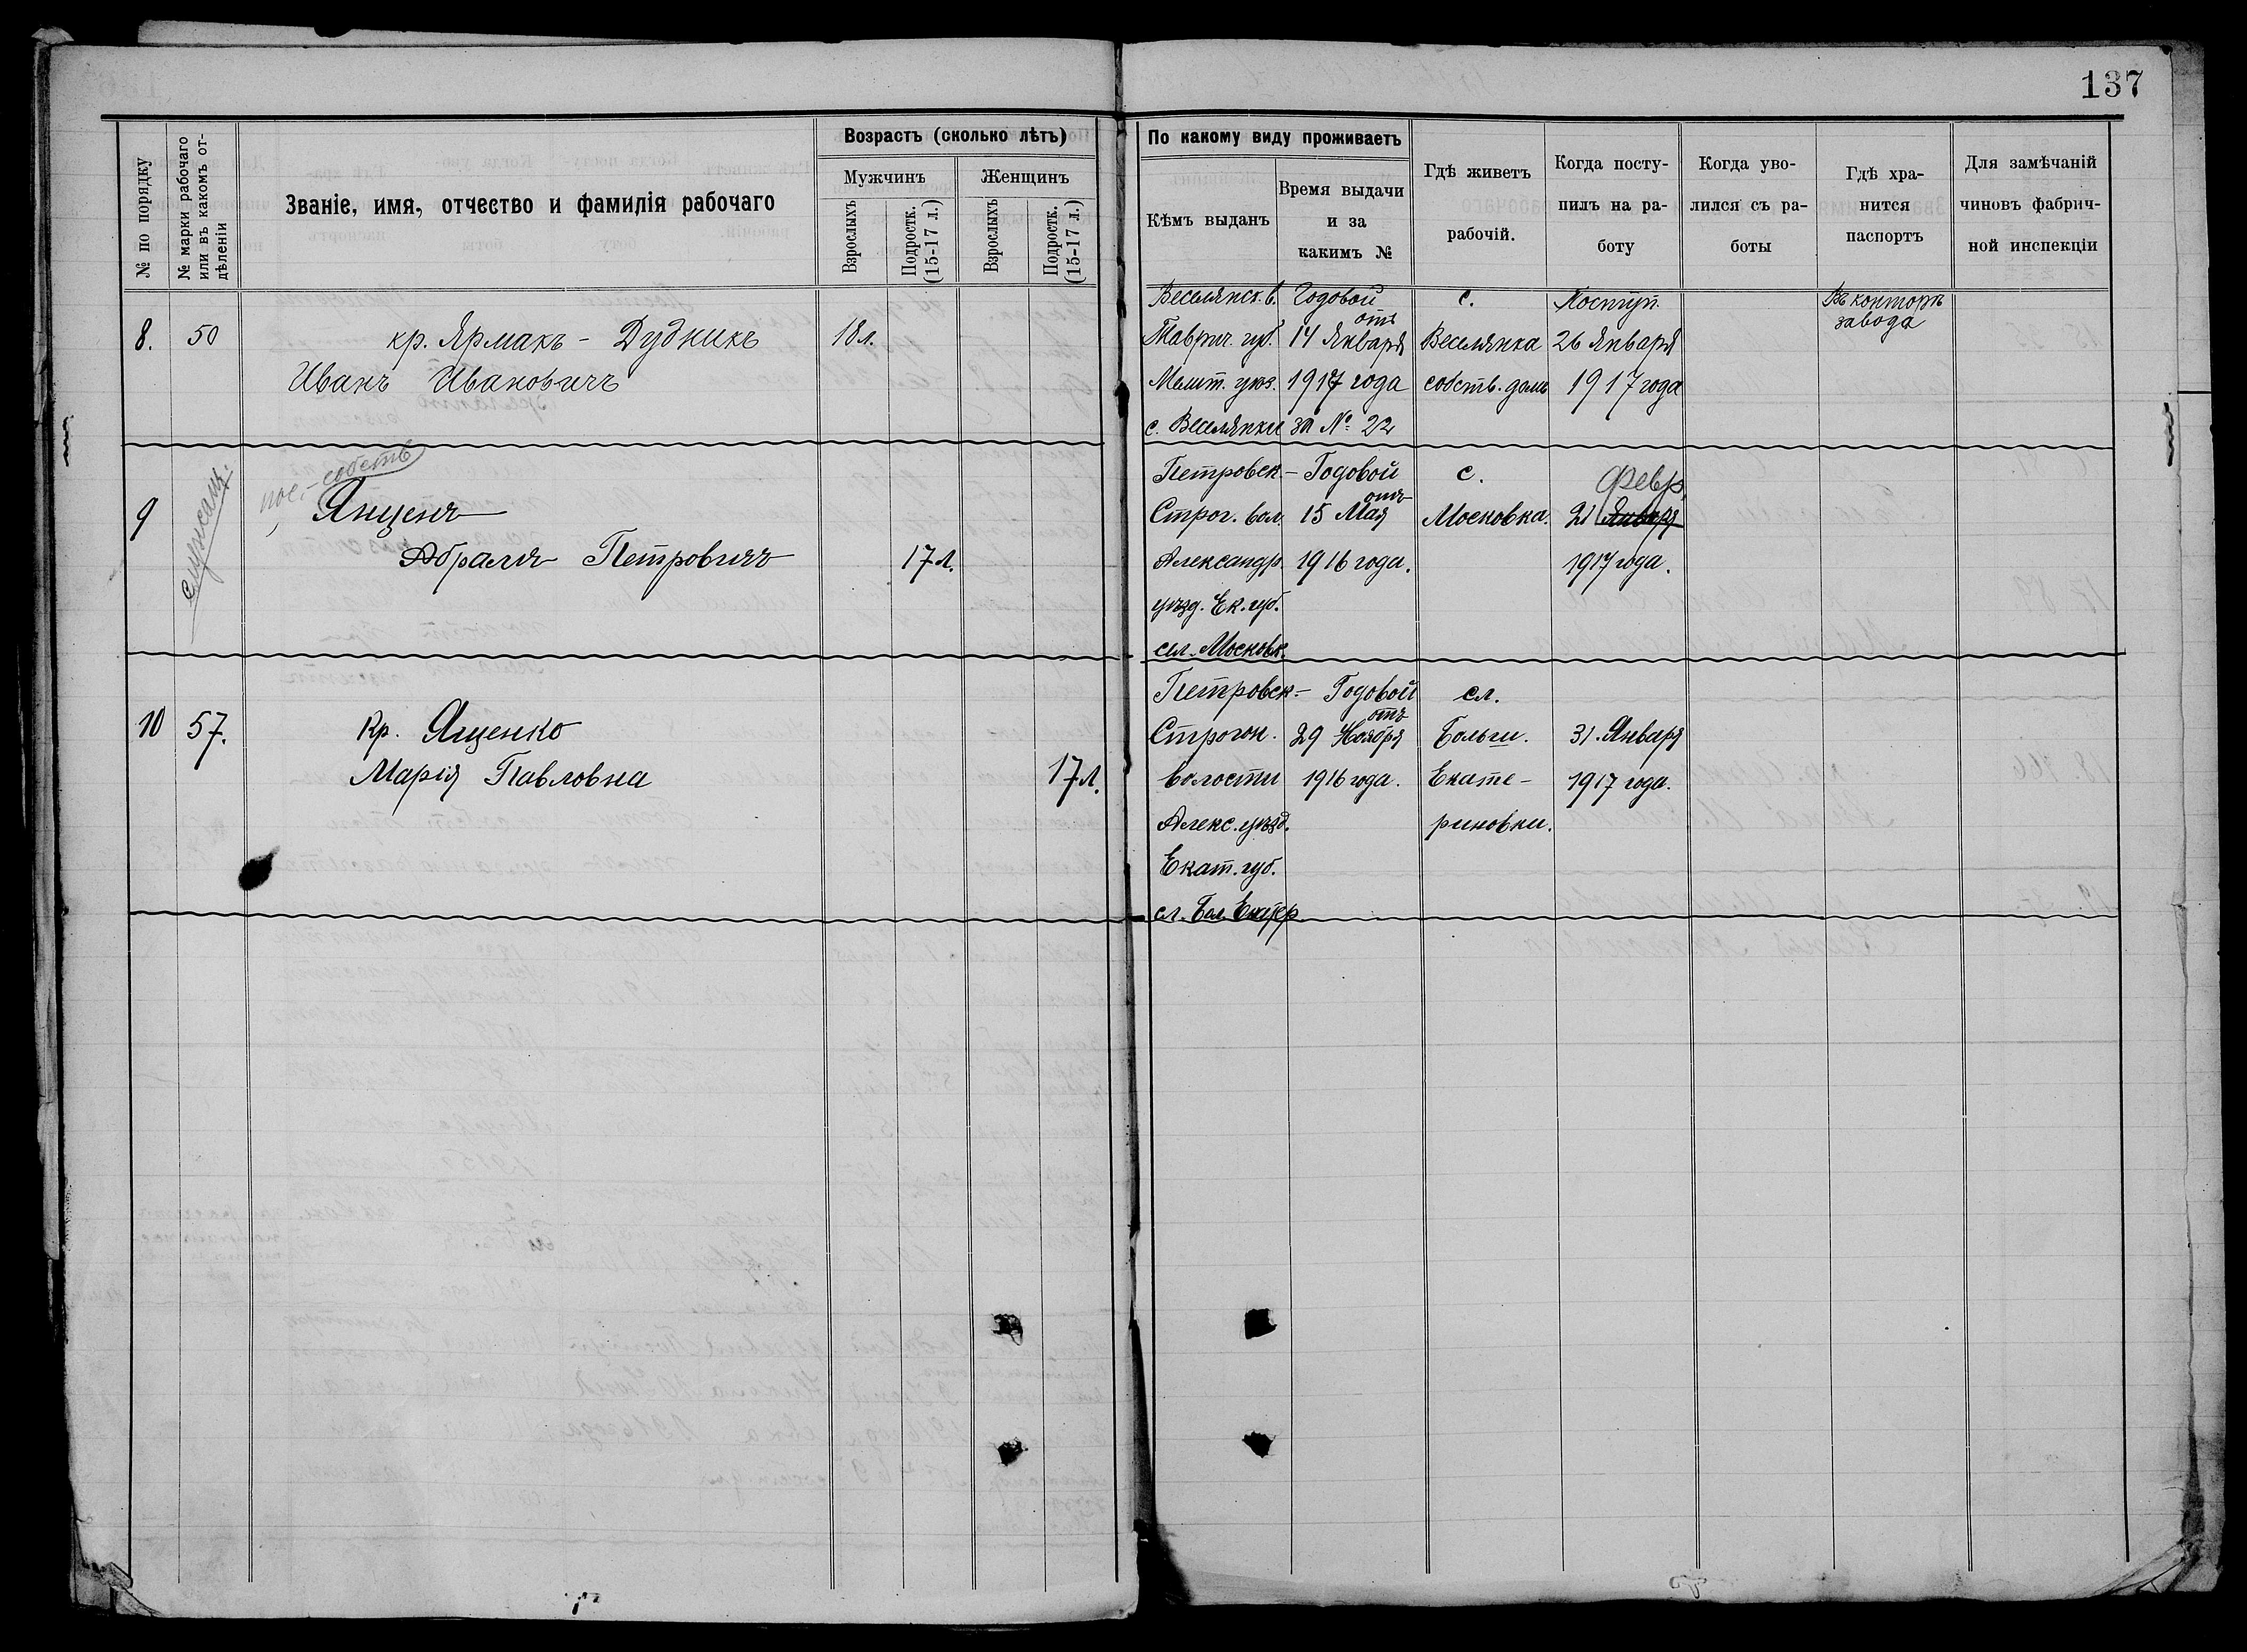 137
№ по порядку
№ марки рабочаго
или въ какомъ от-
дѣленіи
Званіе, имя, отчество и фамилія рабочаго
Возрастъ (сколько лѣтъ)
Мужчинъ
Женщинъ
Взрослыхъ
Подростк.
(15-17 л.)
Взрослыхъ
Подростк.
(15-17 л.)
По какому виду проживаетъ
Кѣмъ выданъ
Время выдачи
и за
какимъ №
Гдѣ живетъ
рабочій.
Когда посту-
пилъ на ра-
боту
Когда уво-
лился съ ра-
боты
Гдѣ хра-
нится
паспортъ
Для замѣчаній
чиновъ фабрич-
ной инспекціи
8.
50
кр. Ярмакъ - Дудникъ
Иванъ Ивановичъ
18 л.
Веселянск. в.
Таврич. губ.
Мелит. уѣз.
с. Веселянки
Годовой
отъ
14 Января
1917 года
за № 22
с.
Веселянка
собств. домъ
Поступ.
26 Января
1917 года
Въ конторѣ
завода
9
служащ.
пос. - собств
Янценъ
Абрамъ Петровичъ
17 л.
Петровск. -
Строг. вол.
Александр.
уѣзд. Ек. губ.
сел. Московк.
Годовой
отъ
15 Мая
1916 года.
с.
Московка.
Февр.
21 Января
1917 года.
10
57.
Кр. Ященко
Марія Павловна
17 л.
Петровск. -
Строгон.
волости
Алекс. уѣзд.
Екат. губ.
сл. Бол. Екатер.
Годовой
отъ
29 Ноября
1916 года.
сл.
Больш.
Екате-
риновки.
31. Января
1917 года.